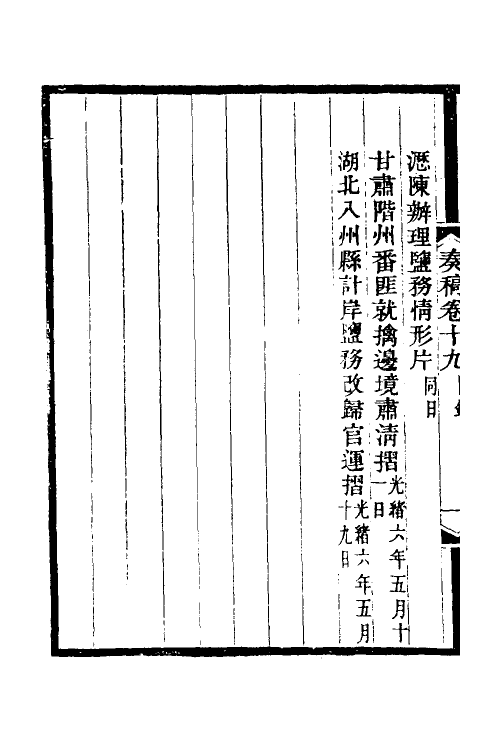 奏稿卷十九
瀝陳辦理鹽務情形片同日
甘肅階州番匪就擒邊境肅清摺光緒六年五月十一日
湖北八州縣計岸鹽務改歸官運摺光緒六年五月十九日